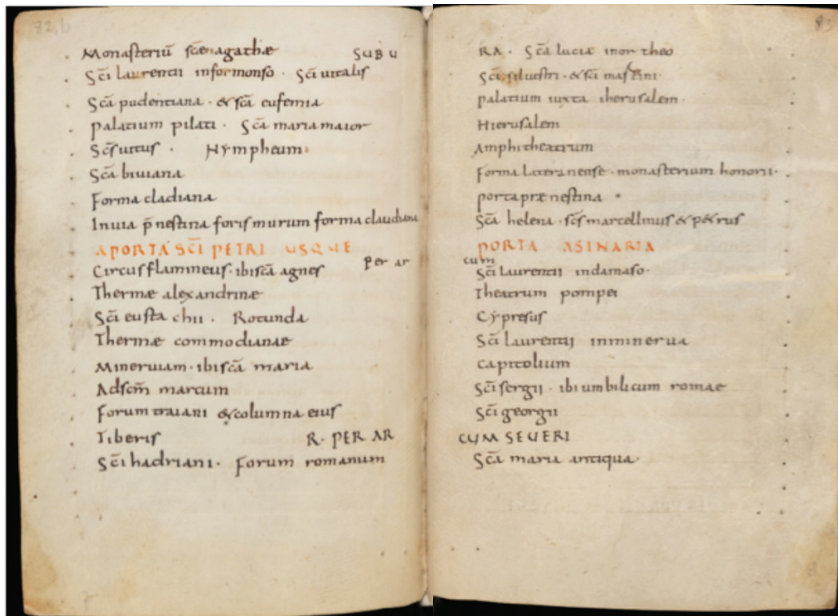 82,b
Monasteriū scaeagathae SUBU
Scī laurentii informonso · Scī uitalis
Scā pudentiana · & scā eufemia
palatium pilati · Scā mariamaior
Scs uitus · Nympheum
Scā biuiana
Forma cladiana
Inuia p̄nestina foris murum forma claudiana
APORTA SCI PETRI USQUE
Circusflamineus · ibiscā agnes Per ar
Thermae alexandrinae
Scī eustachii · Rotunda
Thermae commodianae
Mineruiam · ibi scā maria
Adscm̄ marcum
Forum traiani & columna eius
Tiberis R · PER AR
Scī hadriani · Forum romanum
83
RA · Scā luciae inortheo
Scī siluestri · & scī martini ·
palatium iuxta iherusalem ·
Hierusalem
Amphitheatrum
Forma lateranense · monasterium honorii ·
porta praenestina
Scā helena · scs marcellinus & petrus
PORTA ASINARIA
cum
Scī laurentii indamaso ·
Theatrum pompei
Cypresus
Scī laurentii inminerua
Capitolium
Scī sergii · ibi umbilicum romae
Scī georgii
CUM SEUERI
Scā maria antiqua ·